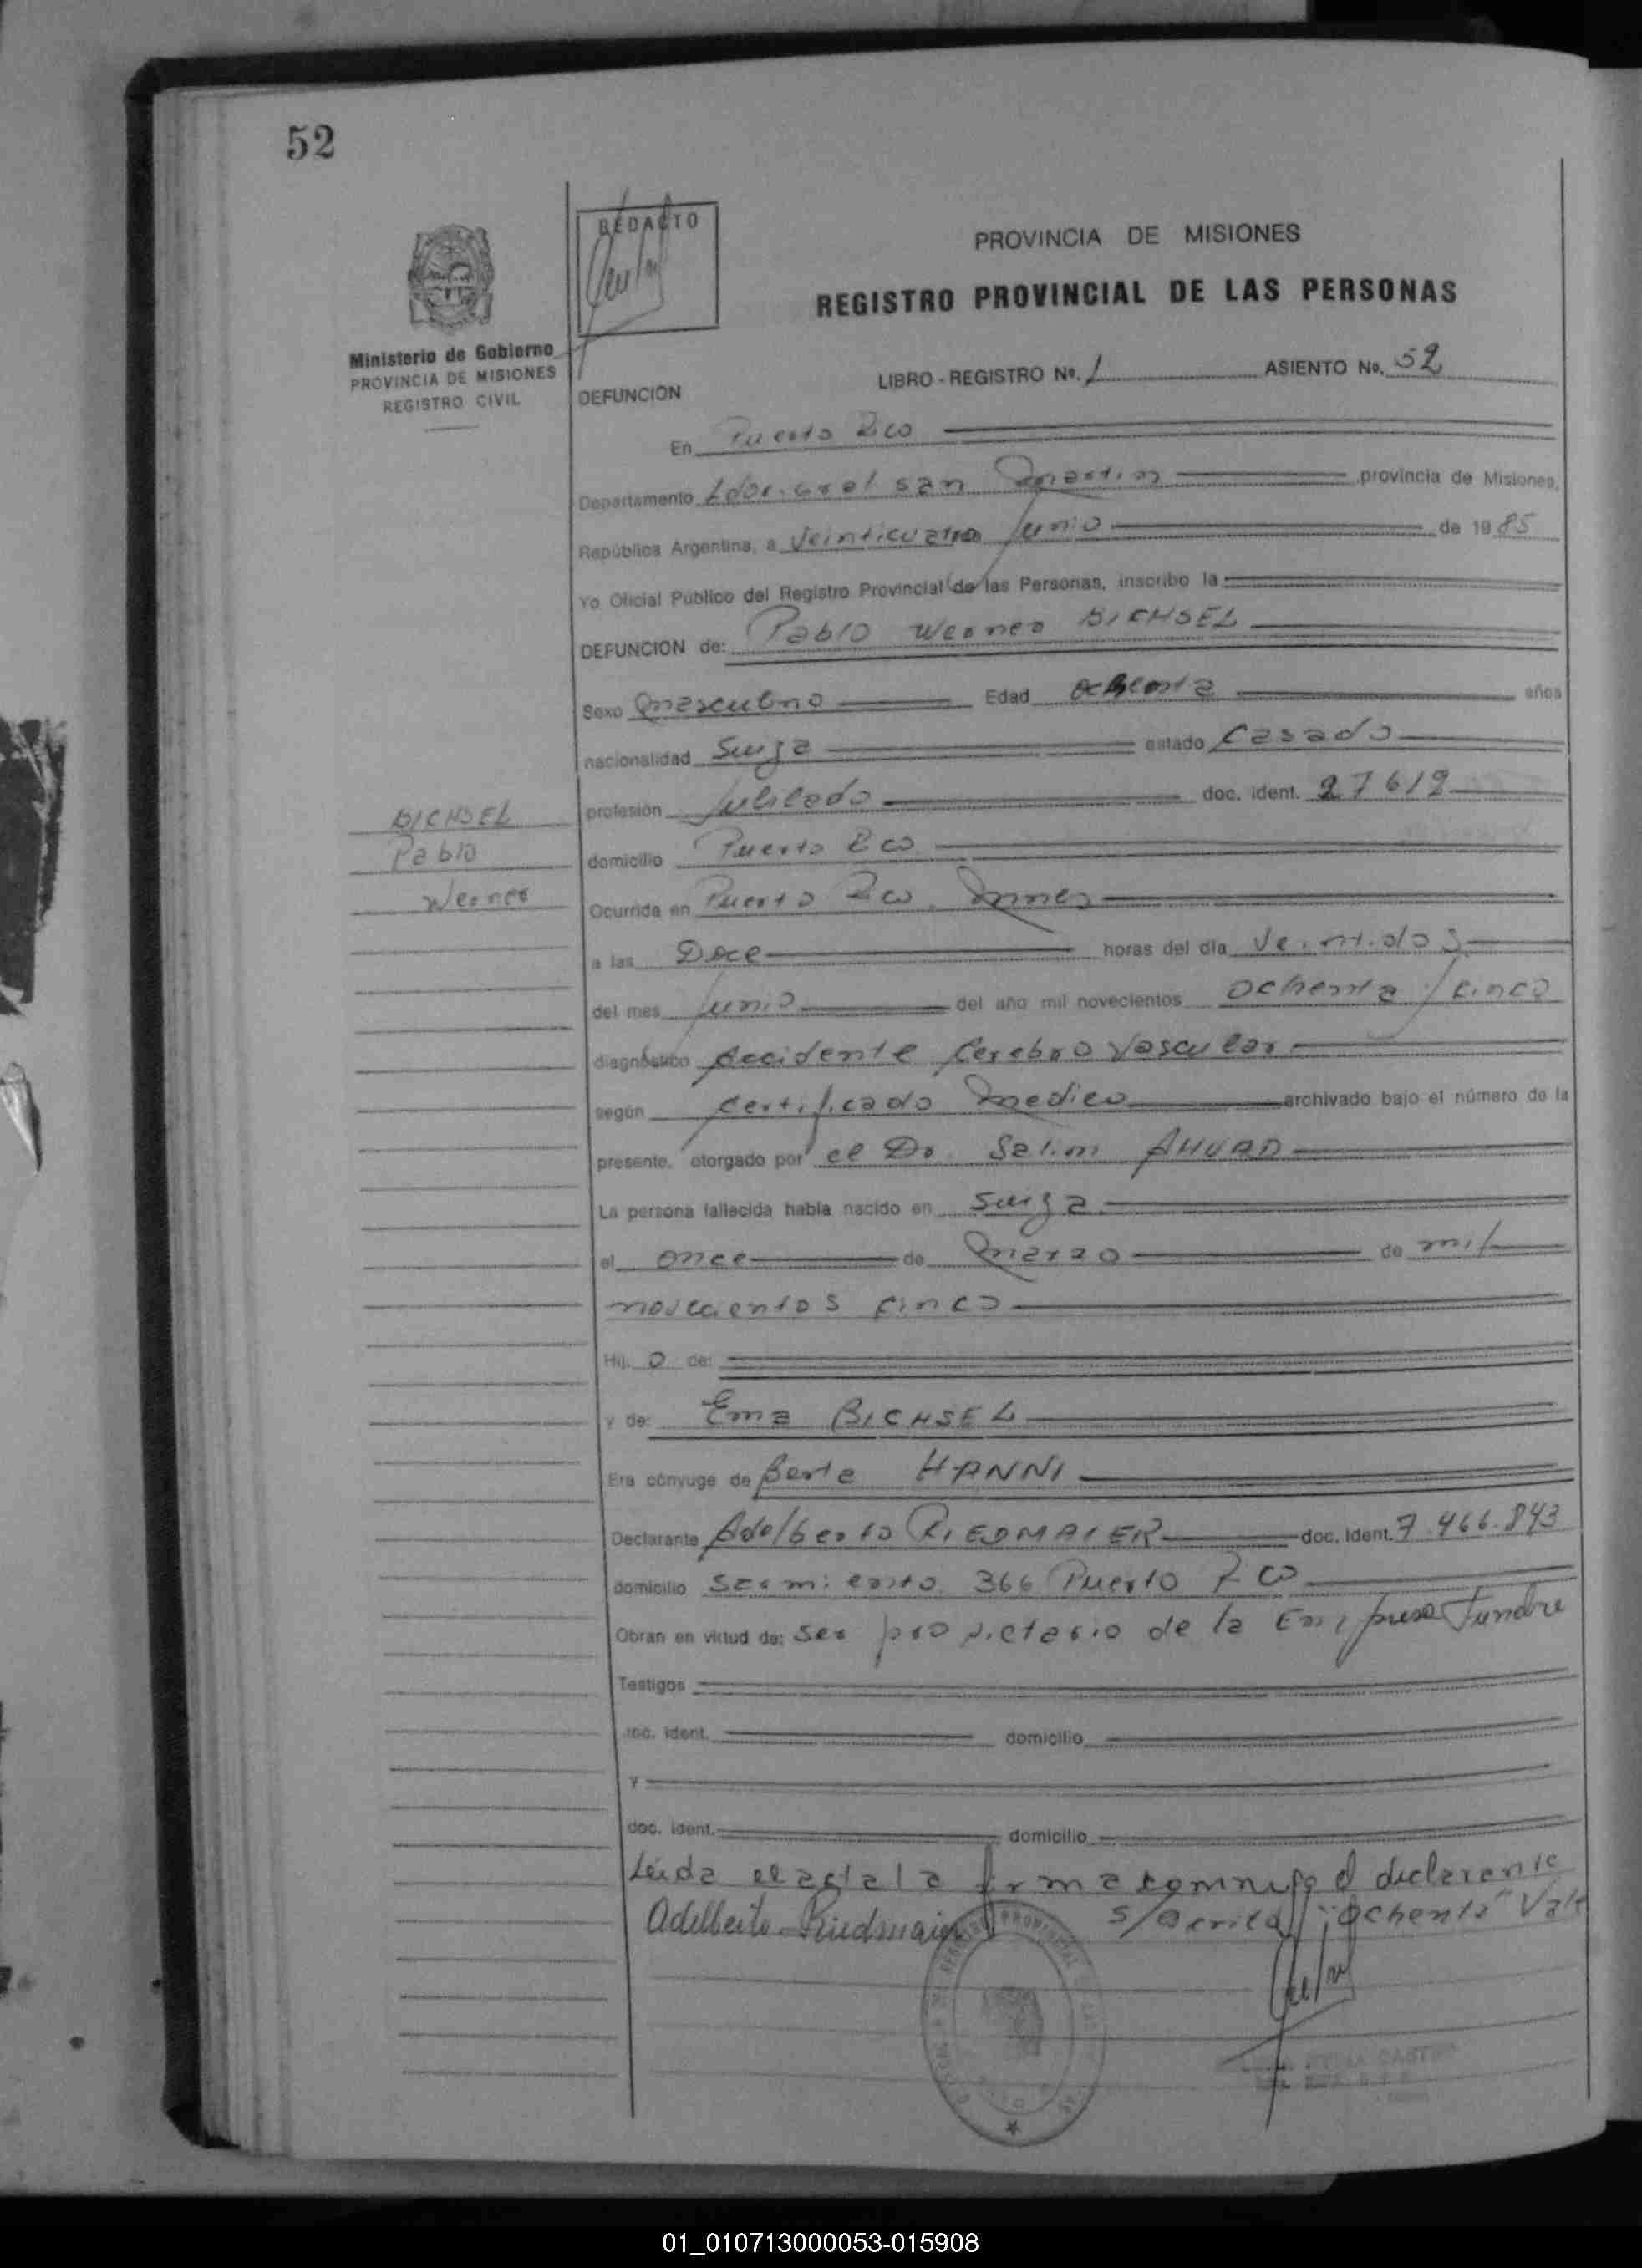 52
REDACTO
PROVINCIA DE MISIONES
REGISTRO PROVINCIAL DE LAS PERSONAS
Ministerio de Gobierno
PROVINCIA DE MISIONES
REGISTRO CIVIL
LIBRO - REGISTRO Nº. 1 ASIENTO No. 52
DEFUNCION
En Puerto Rico
Departamento Ldor. Gral San Martin provincia de Misiones,
República Argentina, a Veinticuatro Junio de 1985
Yo Oficial Público del Registro Provincial de las Personas, inscribo la
DEFUNCION de: Pablo Werner BICHSEL
Sexo Masculino Edad ochenta años
nacionalidad Suiza estado Casado
profesión Jubilado doc. ident. 27612
BICHSEL
Pablo
Werner
domicilio Puerto Rico
Ocurrida en Puerto Rico Mnes
a las Doce horas del día Veintidos
del mes Junio del año mil novecientos ochenta y cinco
diagnóstico Accidente Cerebro Vascular
según certificado Medico archivado bajo el número de la
presente, otorgado por el Dr. Salim AHUAD
La persona fallecida había nacido en Suiza
el once de Marzo de mil
novecientos cinco
Hij. o de:
y de: Ema BICHSEL
Era cónyuge de Berta HANNI
Declarante Adelberto RIEDMAIER doc. ident. 7.466.843
domicilio Sarmiento 366 Puerto Rico
Obran en virtud de: Ser propietario de la Empresa Funebre
Testigos
doc. ident. domicilio
y
doc. ident. domicilio
Leida el acta la firma conmigo el declarante
Adelberto Riedmaier S/ "Ochenta" Vale
CASTRO
01_010713000053-015908